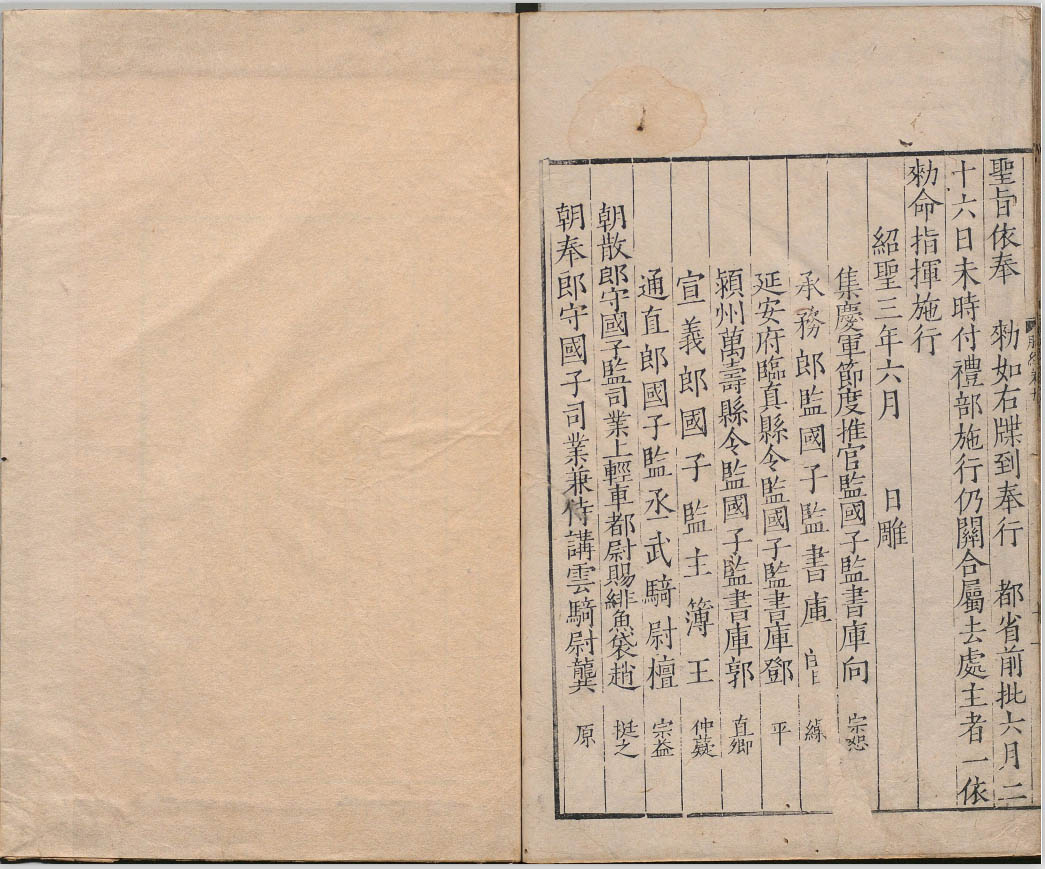 聖旨依奉　勑如右牒到奉行　都省前批六月二
十六日未時付禮部施行仍關合屬去處主者一依
勑命指揮施行
紹聖三年六月　日雕
集慶軍節度推官監國子監書庫向　宗恕
承務郎監國子監書庫　縧
延安府臨真縣令監國子監書庫鄧　平
潁州萬壽縣令監國子監書庫郭　直卿
宣義郎國子監主簿王　仲薿
通直郎國子監丞武騎尉檀　宗益
朝散郎守國子監司業上輕車都尉賜緋魚袋趙　挺之
朝奉郎守國子司業兼侍講雲騎尉龔　原